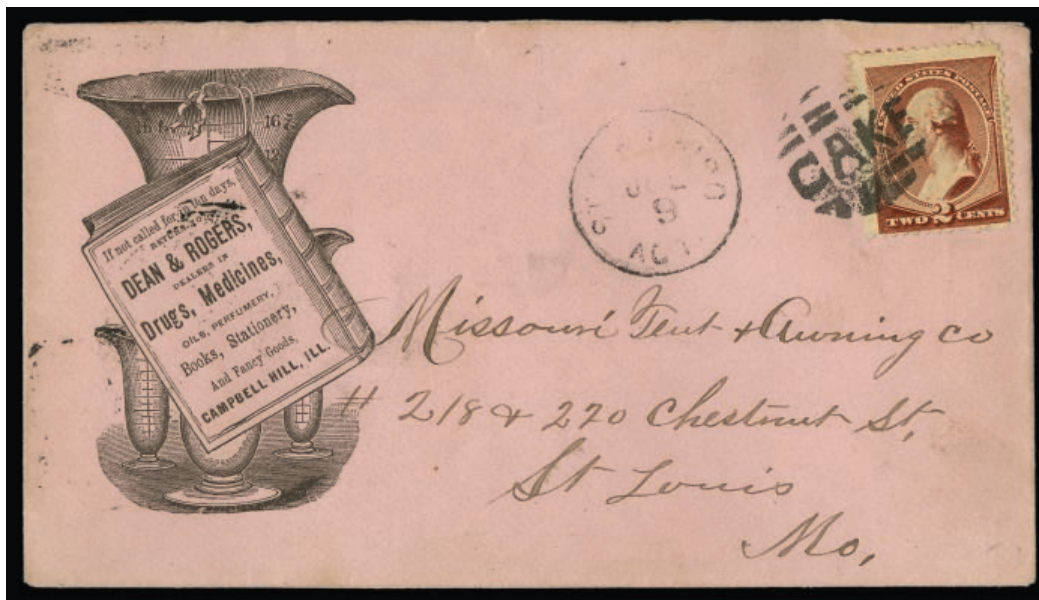 16
If not called for in ten days,
RETURN TO
DEAN & ROGERS,
DEALERS IN
Drugs, Medicines,
OILS, PERFUMERY,
Books, Stationery,
And Fancy Goods,
CAMPBELL HILL, ILL.
9
AGT.
UNITED STATES POSTAGE
TWO 2 CENTS
Missouri Tent & Awning Co
# 218 & 220 Chestnut St,
St Louis
Mo,